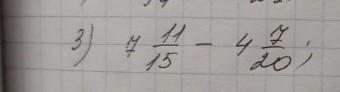 3) 7 11/15 - 4 7/20;